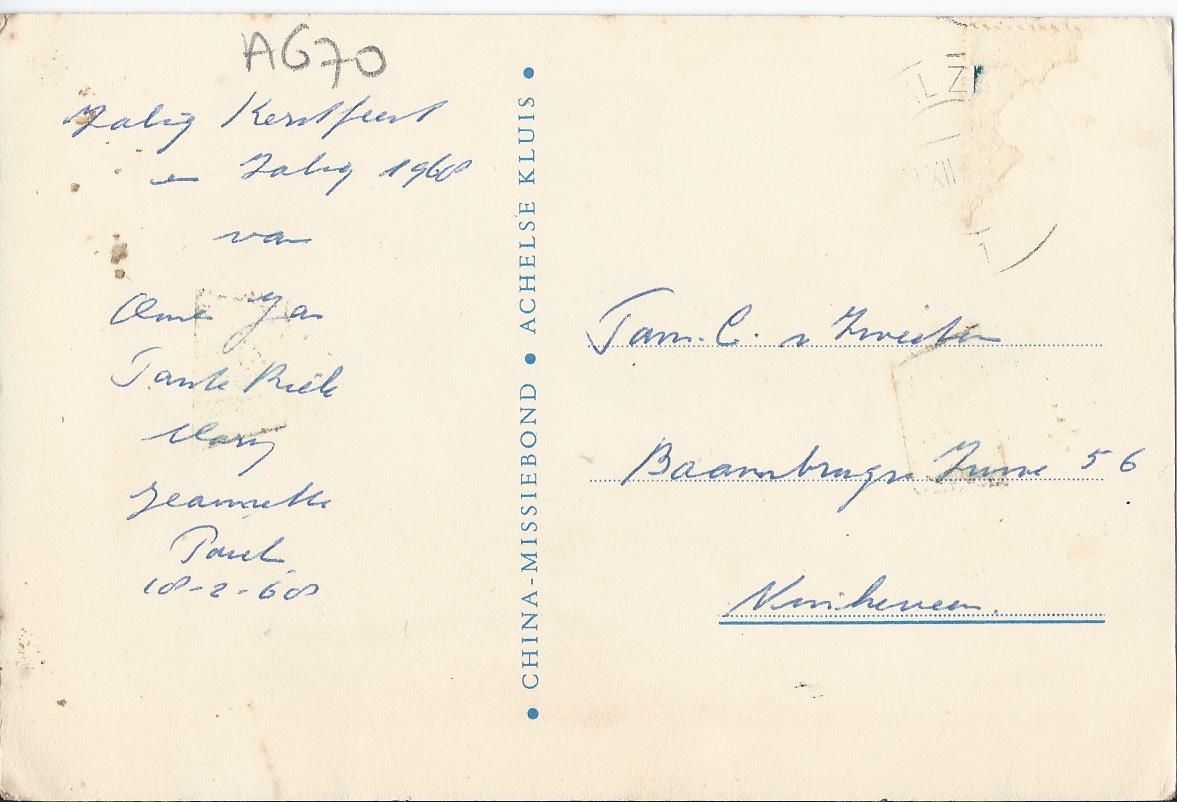 A670
Zalig Kerstfeest
en Zalig 1968
van
Ome Jan
Tante Riek
Mary
Jeannette
Paul
18-2-68
• CHINA-MISSIEBOND • ACHELSE KLUIS •
LZ
XII
1
Fam. C. v Zwieten
Baambrugse Zuwe 56
Vinkeveen.